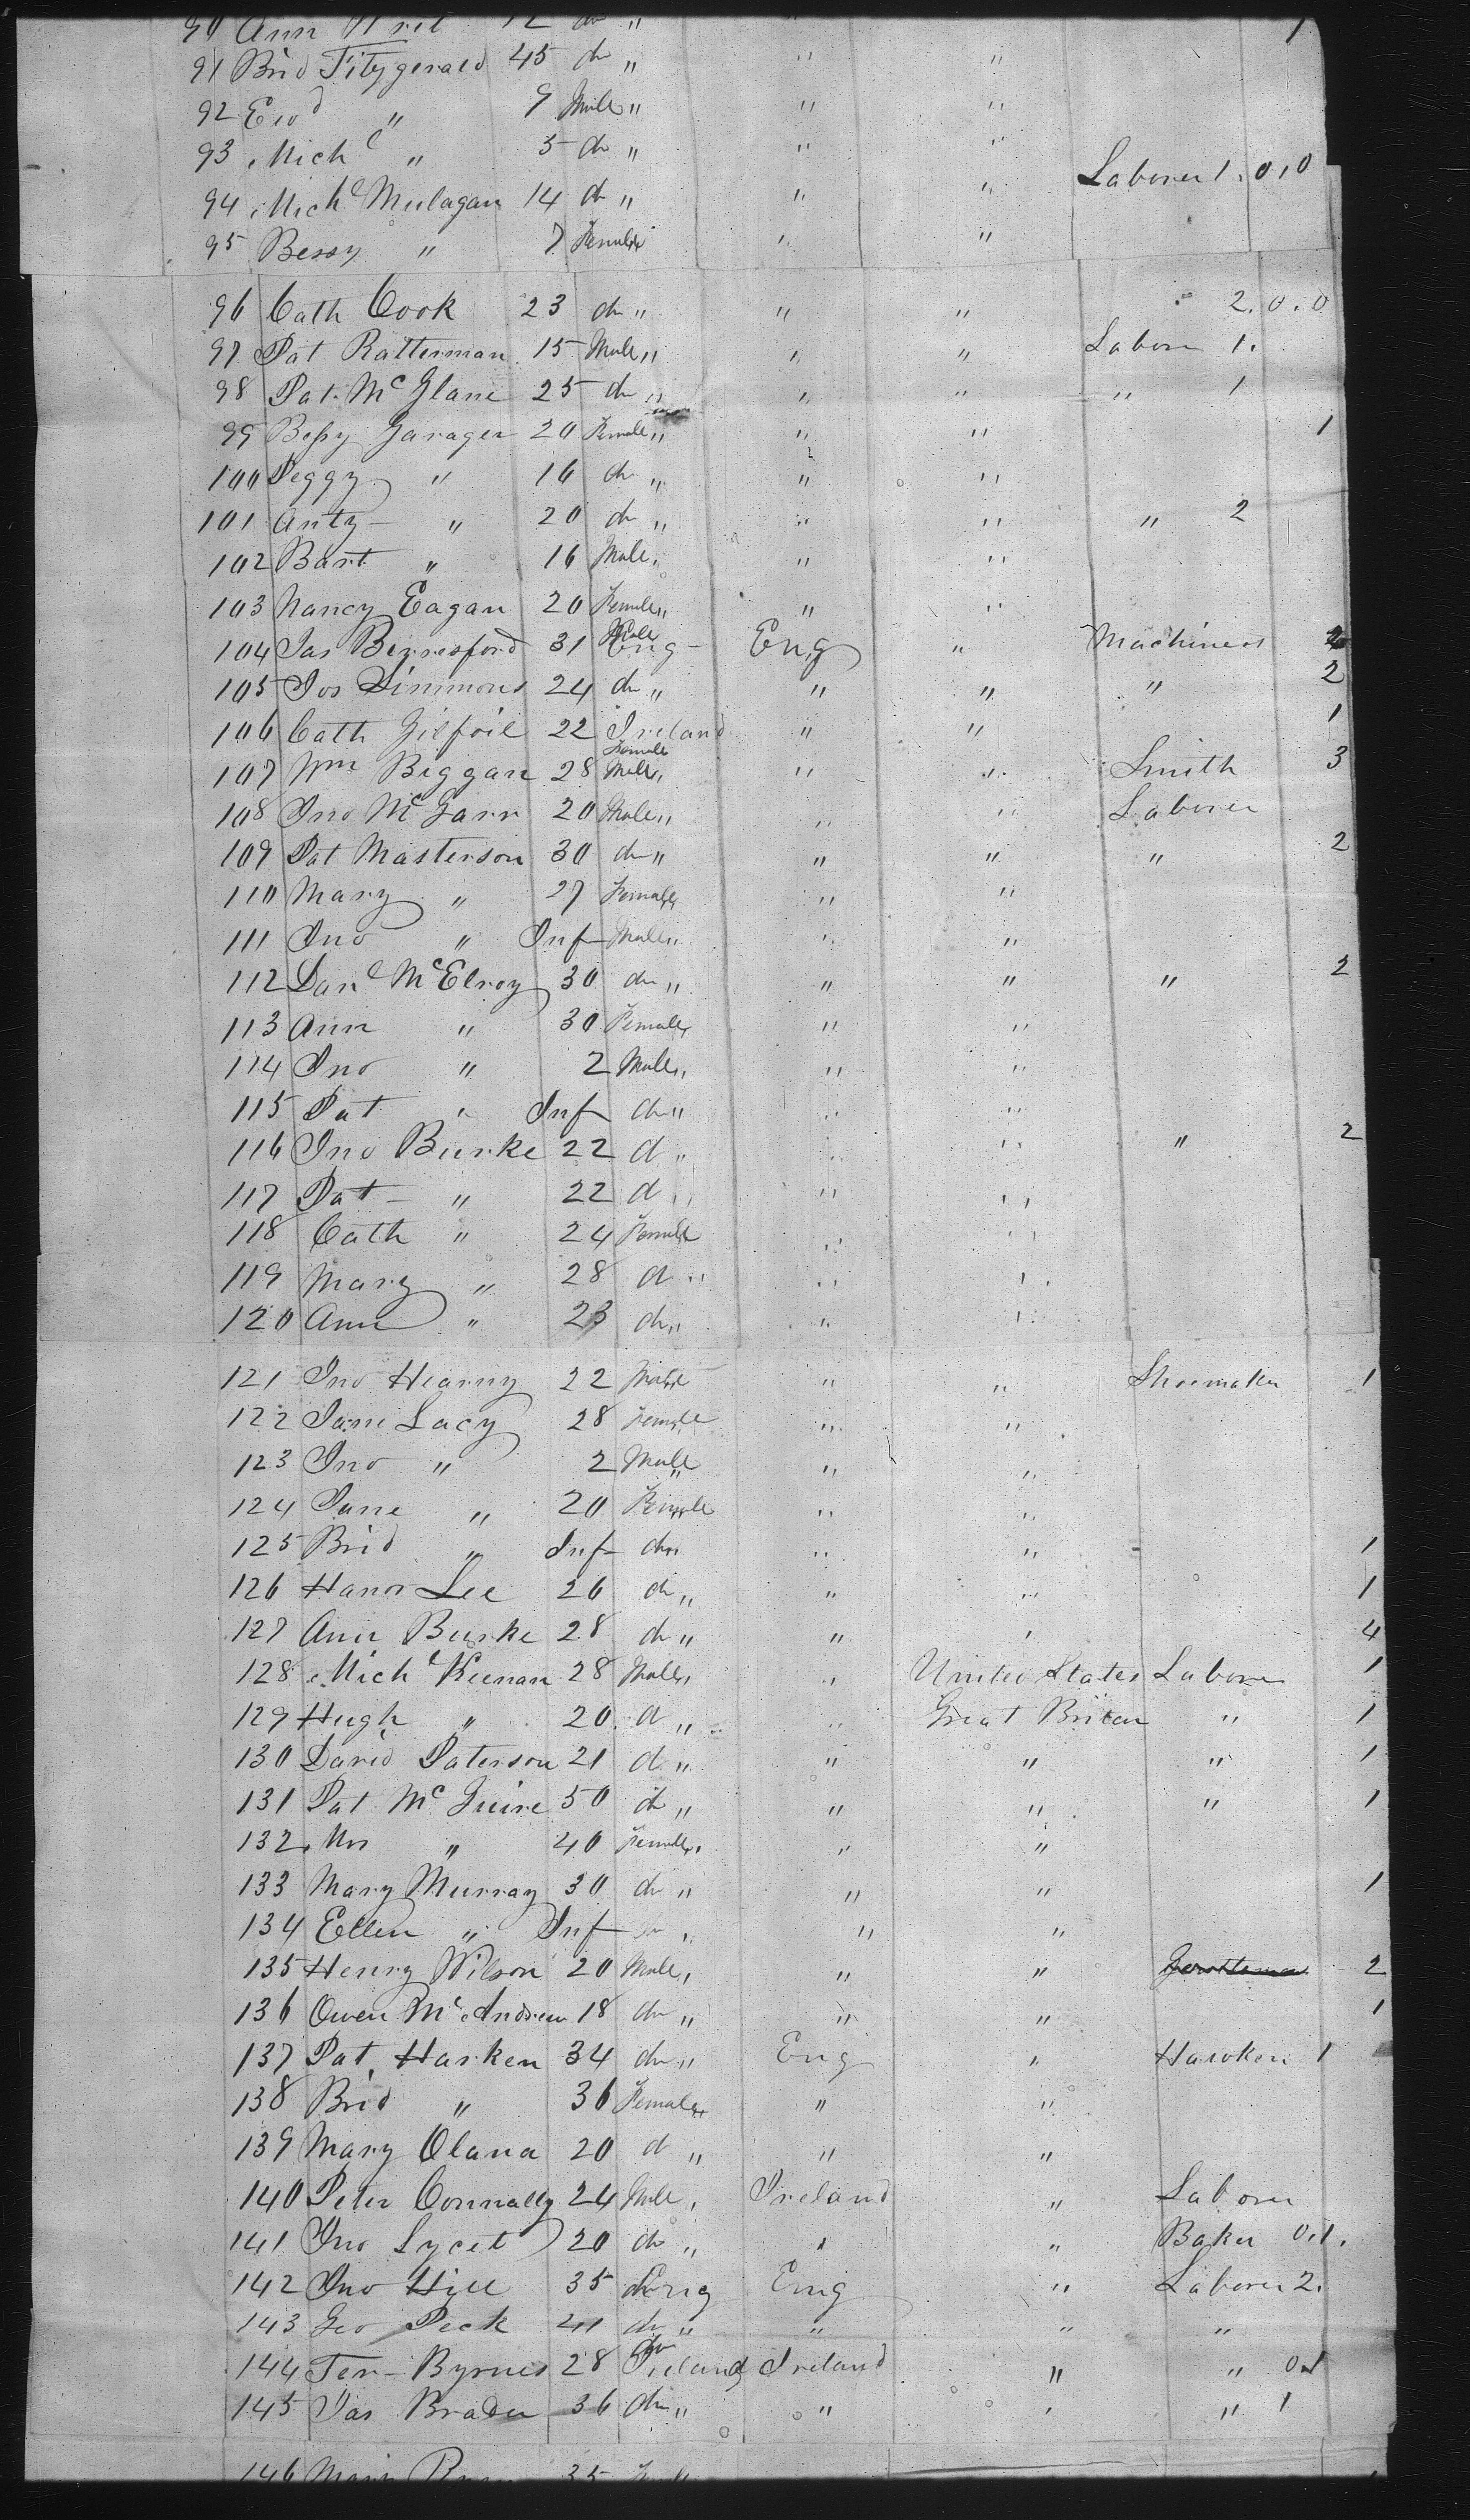 90 Ann 12 do " 1
91 Brid Fitzgerald 45 do " " "
92 Ewd " 9 Male " " "
93 Michl " 5 do " " "
94 Michl Mulagan 14 do " " " Laborer 1. 0. 0
95 Bessy " 7 Female " " "
96 Cath Cook 23 do " " " 2. 0. 0
97 Pat Ratterman 15 Male " " " Labore 1.
98 Pat McGlane 25 do " " " " 1
99 Bessy Garager 20 Female " " " 1
100 Peggy " 16 do " " "
101 Anty " 20 do " " " " 2
102 Bart " 16 Male " " "
103 Nancy Eagan 20 Female " " "
104 Jas Berresford 31 Male Eng Eng " Machiners 2
105 Jos Simmons 24 do " " " " 2
106 Cath Gilfoil 22 Ireland Female " " 1
107 Wm Biggan 28 Male " " " Smith 3
108 Jno McGarr 20 Male " " " Laborer
109 Pat Masterson 30 do " " " " 2
110 Mary " 27 Female " " "
111 Jno " Inf Male " " "
112 Danl McElroy 30 do " " " " 2
113 Ann " 30 Female " " "
114 Jno " 2 Male " " "
115 Pat " Inf do " " "
116 Jno Burke 22 d " " " " 2
117 Pat " 22 d " " "
118 Cath " 24 Female " "
119 Mary " 28 d " " "
120 Ann " 23 do " " "
121 Jno Hearny 22 Male " " Shoemaker 1
122 Jane Lacy 28 Female " "
123 Jno " 2 Male " " "
124 Jane " 20 Female " "
125 Brid " Inf do " " " 1
126 Hanor Lee 26 do " " " 1
127 Ann Burke 28 do " " " 4
128 Michl Keenan 28 Male " " United States Labore 1
129 Hugh " 20 d " " Great Britan " 1
130 David Paterson 21 d " " " " 1
131 Pat McGuire 50 do " " " " 1
132 Mrs " 40 Female " " "
133 Mary Murray 30 do " " " 1
134 Ellen " Inf do " " "
135 Henry Wilson 20 Male " " " Gentleman 2
136 Owen McAndrew 18 do " " " 1
137 Pat Harken 34 do " Eng " Hawker 1
138 Brid " 36 Female " " "
139 Mary Olana 20 d " " "
140 Peter Connally 24 Male " Ireland " Laborer
141 Jno Lycet 20 do " " " Baker 0.1.
142 Jno Hill 35 do Eng Eng " Laborer 2.
143 Geo Peck 41 do " " " "
144 Ter Byrnes 28 do Ireland Ireland " " 0.1
145 Jas Braden 36 do " " " " 1
146 Mary 35